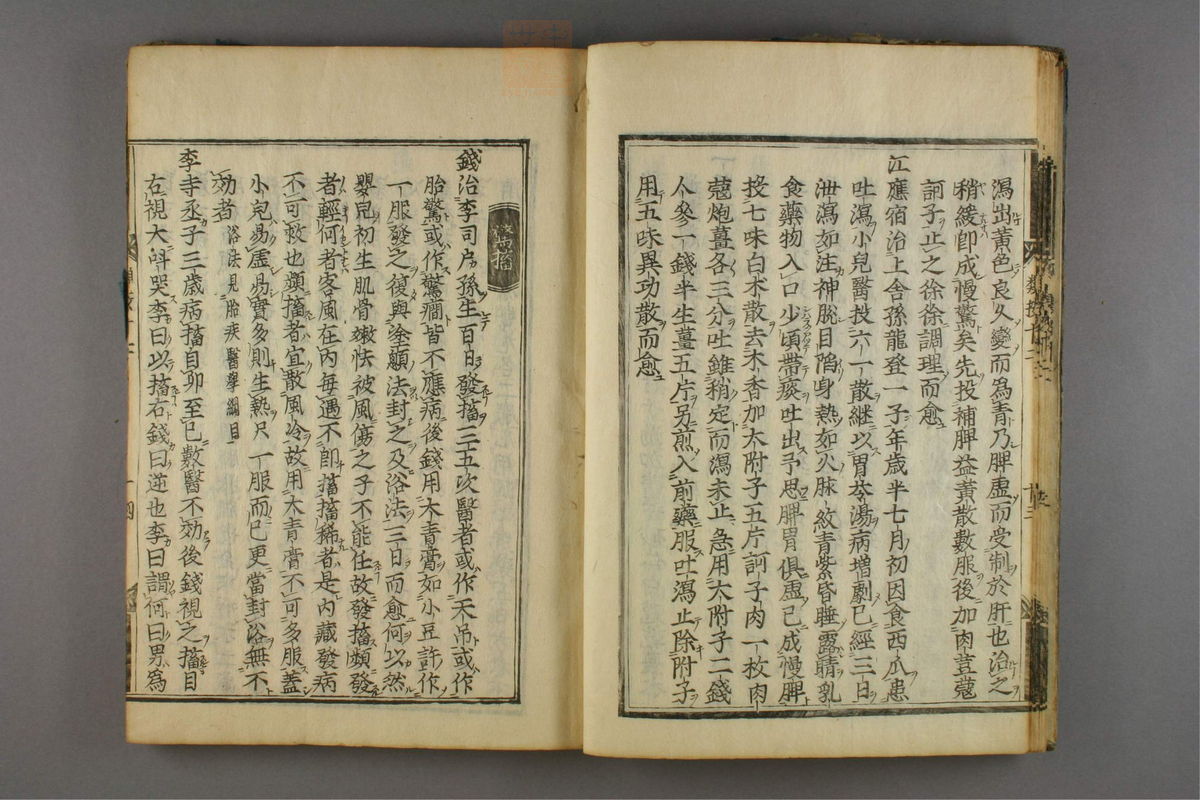 瀉出黃色良久變而為青乃脾虛而受制於肝也治之
稍緩卽成慢驚矣先投補脾益黃散數服後加肉荳蔻
訶子止之徐徐調理而愈
江應宿治上舍孫龍登一子年歲半七月初因食西瓜患
吐瀉小兒醫投六一散繼以胃苓湯病增劇已經三日
泄瀉如注神脫目陷身熱如火脉紋青紫昏睡露睛乳
食藥物入口少頃帶痰吐出予思脾胃俱虛已成慢脾
投七味白朮散去木香加大附子五片訶子肉一枚肉
蔻炮薑各三分吐雖稍定而瀉未止急用大附子二錢
人參一錢半生薑五片另煎入前藥服吐瀉止除附子
用五味異功散而愈
驚搐
錢治李司戶孫生百日發搐三五次醫者或作天吊或作
胎驚或作驚癇皆不應病後錢用大青膏如小豆許作
一服發之復與塗顖法封之及浴法三日而愈何以然
嬰兒初生肌骨嫩怯被風傷之子不能任故發搐頻發
者輕何者客風在內每遇不卽搐搐稀者是內藏發病
不可救也頻搐者宜散風冷故用大青膏不可多服蓋
小兒易虛易實多則生熱只一服而已更當封浴無不
効者 浴法見胎疾醫學綱目
李寺丞子三歲病搐自卯至巳數醫不効後錢視之搐目
右視大呌哭李曰以搐右錢曰逆也李曰謂何曰男為